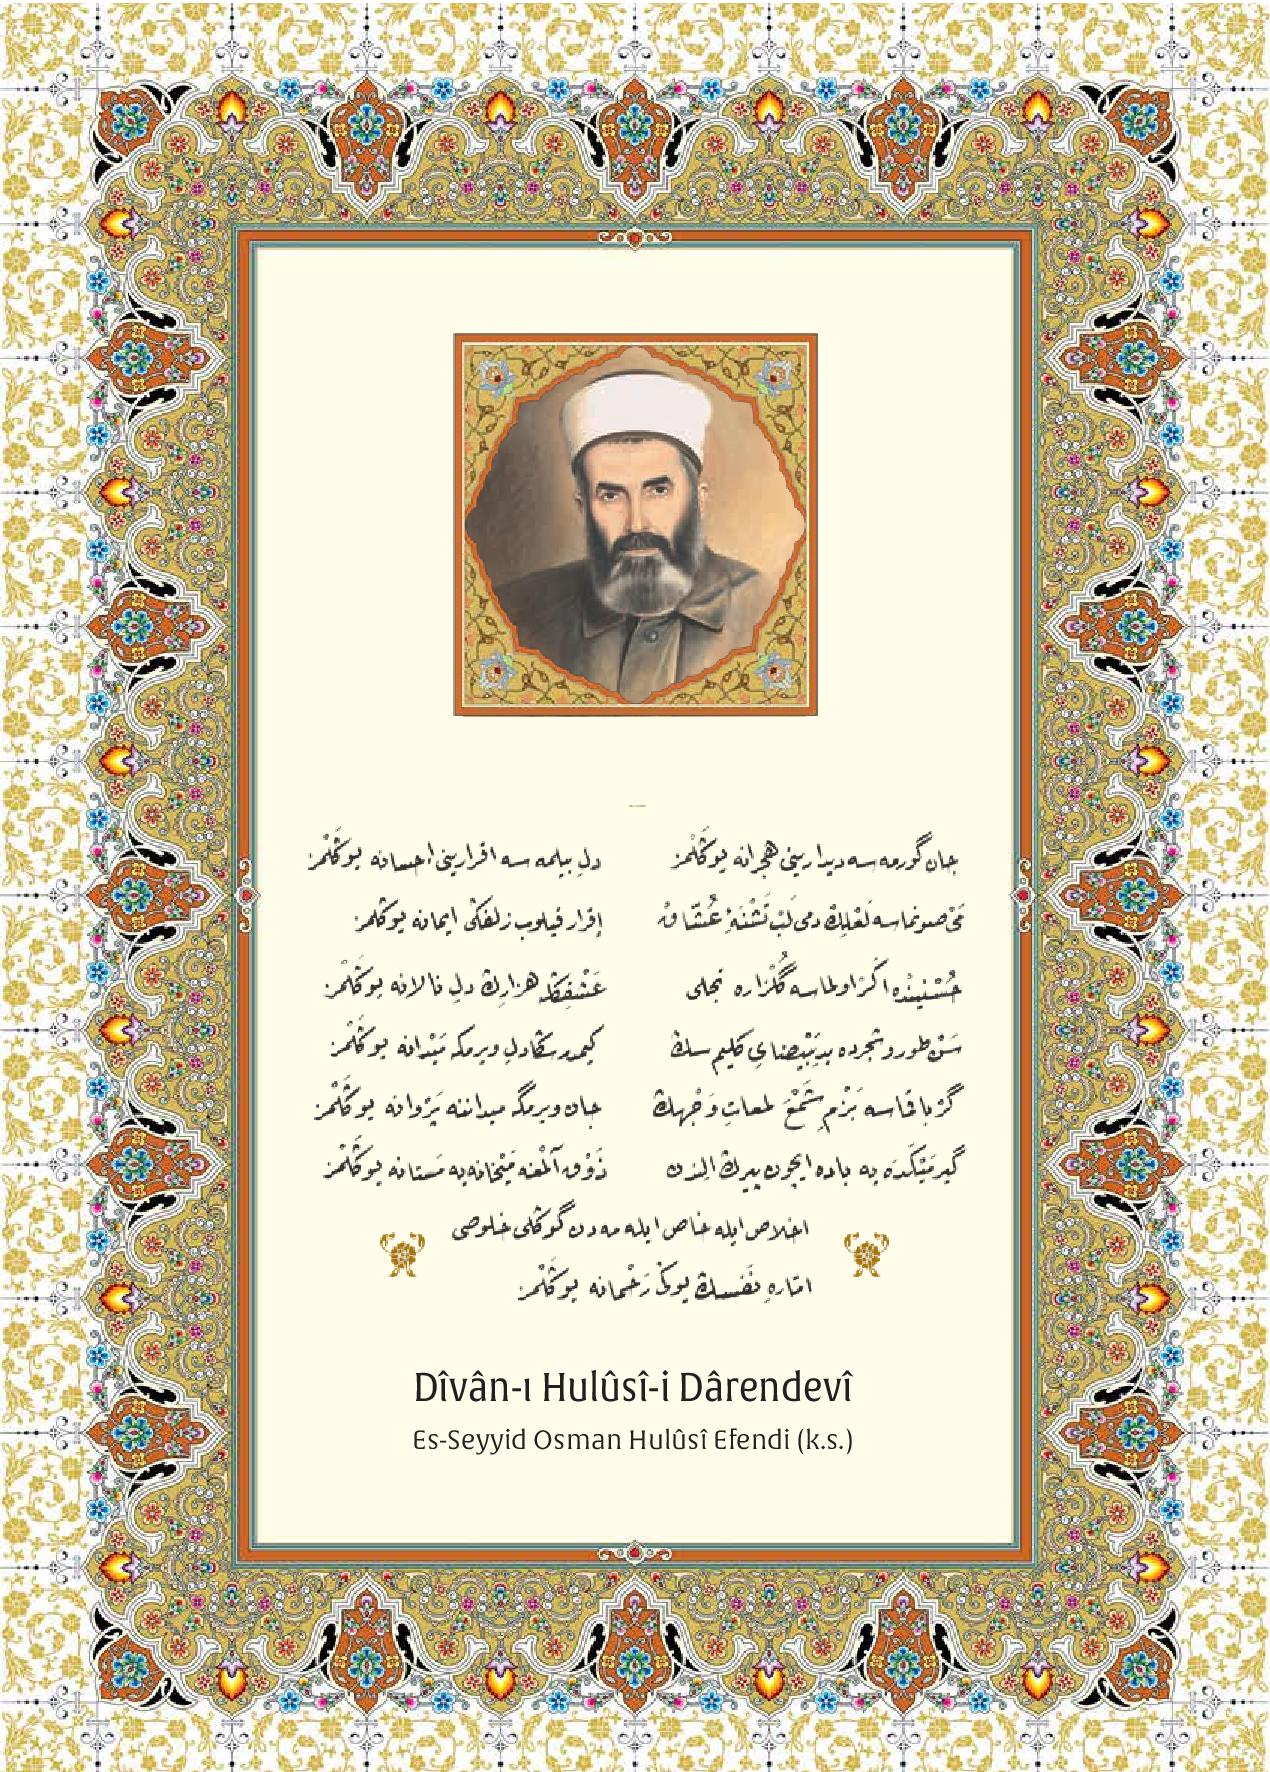 جان گورمه سه ديدارينى هجرانه يوڭلمز دل بيلمه سه اقرارينى احسانه يوڭلمز
مى صونماسه لعلڭ دمى لب تشنۀ عشاق اقرار قيلوب زلفڭى ايمانه يوڭلمز
حسنينده اگر اولماسه گلزاره تجلى عشقڭله هزارڭ دل نالانه يوڭلمز
سن طور و شجرده يد بيضاى كليم سڭ كيمدر سڭا دل ويرمكه ميدانه يوڭلمز
گر ياقاسه بزم شمع لمعات وجهڭ جان ويرمگه ميداننه پروانه يوڭلمز
گير ميكده يه باده ايچون پيرڭ الندن ذوق آلمغه ميخانه يه مستانه يوڭلمز
اخلاص ايله خاص ايله مه دن گوڭلى خلوصى
اماره نفسڭ يوڭ رحمانه يوڭلمز
Dîvân-ı Hulûsî-i Dârendevî
Es-Seyyid Osman Hulûsî Efendi (k.s.)